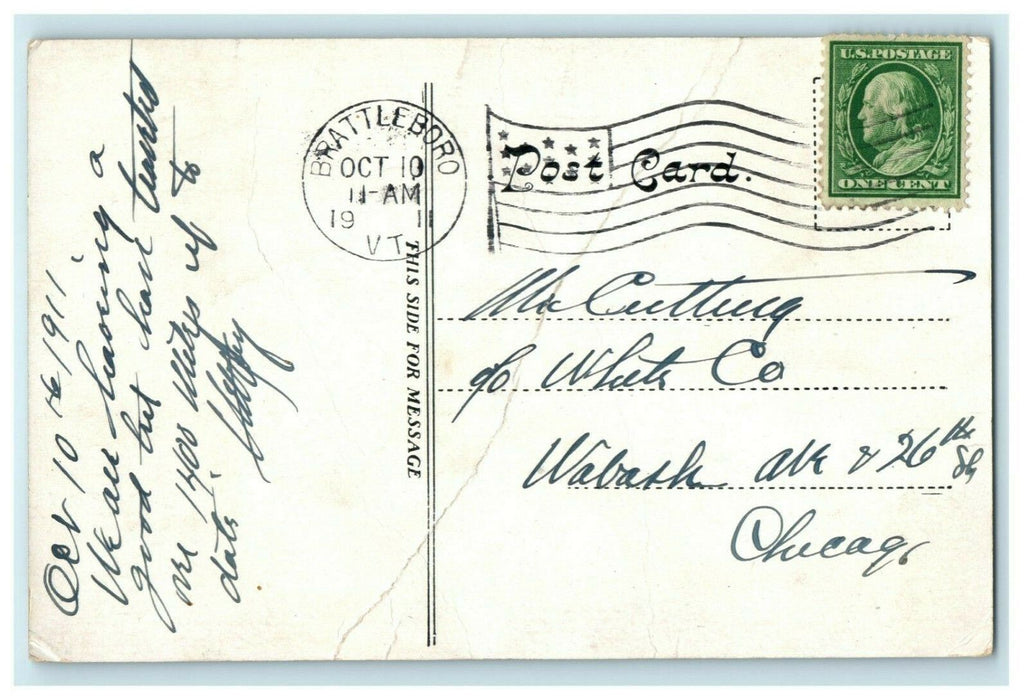 Oct 10 th 1911
We are having a
good but have toured
over 1400 Miles up to
date.
THIS SIDE FOR MESSAGE
BRATTLEBORO
OCT 10
11-AM
19 1
VT.
Post Card.
U.S. POSTAGE
ONE CENT
Mr Cutting
c/o White Co
Wabash Ave & 26th St
Chicago